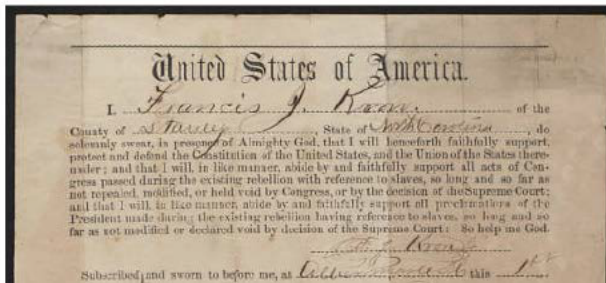 United States of America.
I, Francis J. Kron, of the
County of Stanly, State of North Carolina, do
solemnly swear, in presence of Almighty God, that I will henceforth faithfully support,
protect and defend the Constitution of the United States, and the Union of the States there-
under; and that I will, in like manner, abide by and faithfully support all acts of Con-
gress passed during the existing rebellion with reference to slaves, so long and so far as
not repealed, modified, or held void by Congress, or by the decision of the Supreme Court;
and that I will, in like manner, abide by and faithfully support all proclamations of the
President made during the existing rebellion having reference to slaves, so long and so
far as not modified or declared void by decision of the Supreme Court: So help me God.
Kron
Subscribed and sworn to before me, at this 1st